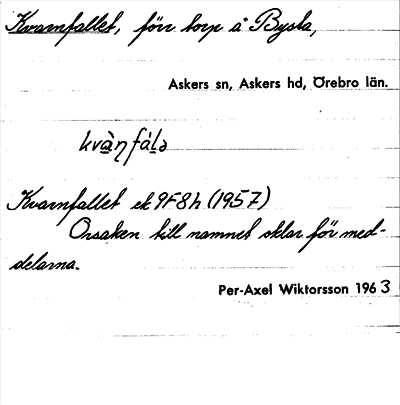 Kvarnfallet, förr torp å Bysta,
Askers sn, Askers hd, Örebro län.
kvà̠ŋfál̠ə
Kvarnfallet ek 9F8h (1957)
Orsaken till namnet oklar för med-
delarna.
Per-Axel Wiktorsson 1963